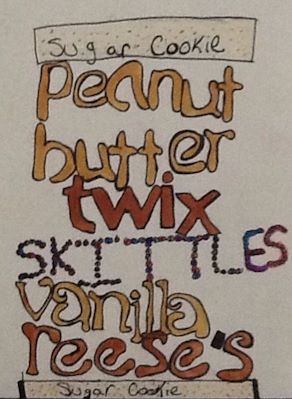 Sugar Cookie
peanut
butter
twix
SKITTLES
vanilla
reese's
Sugar Cookie